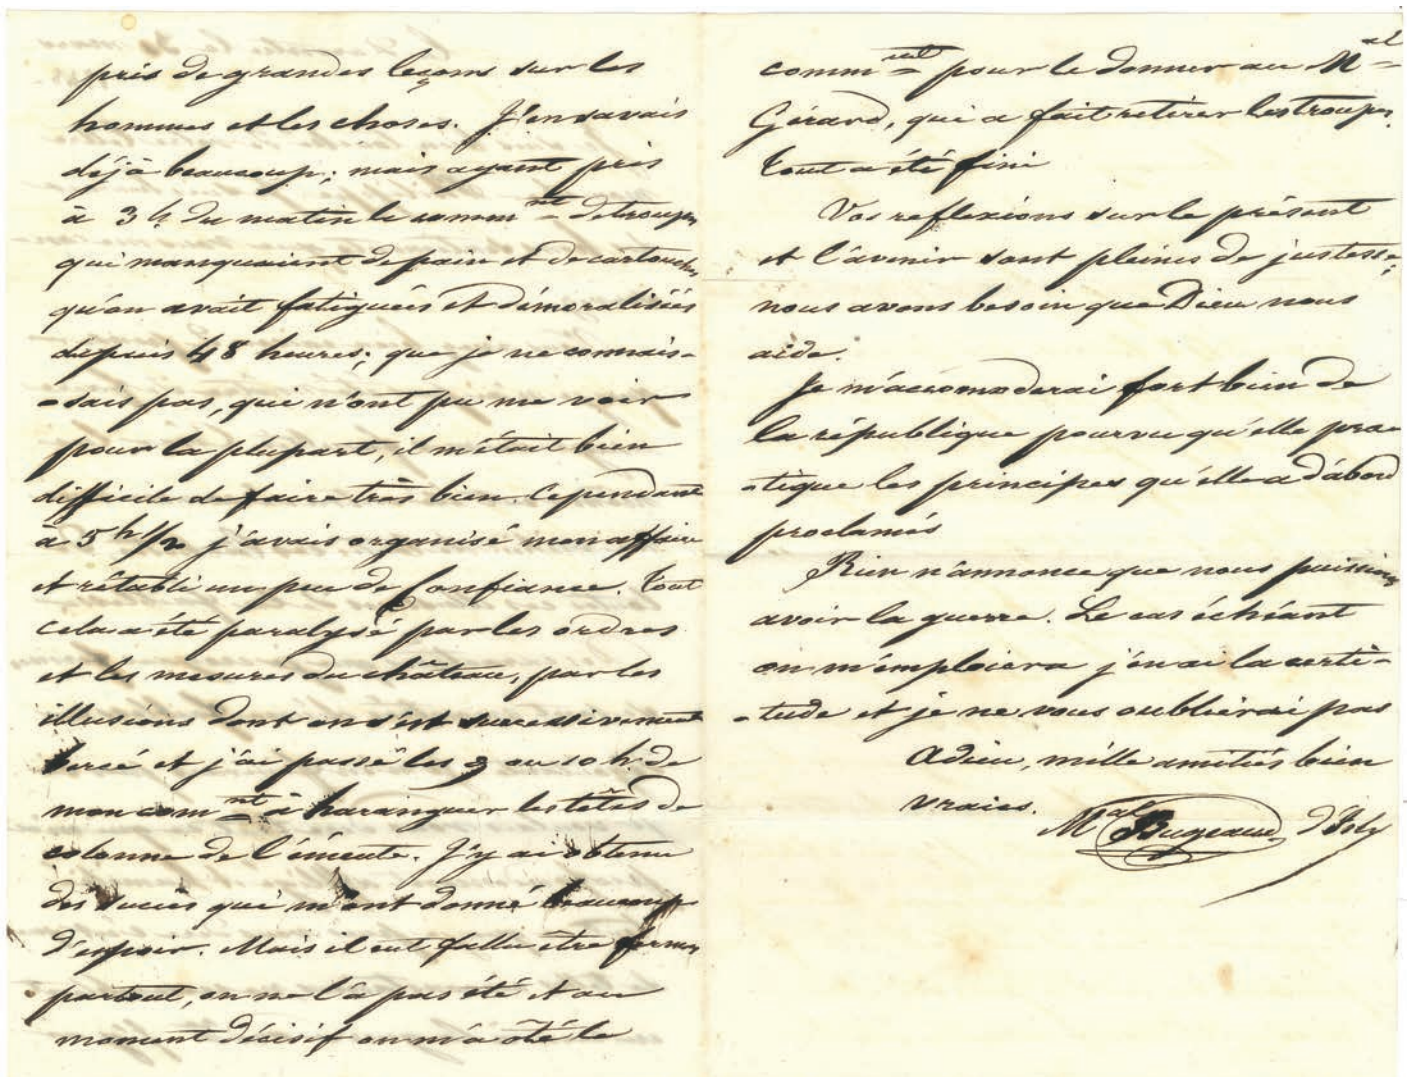 pris de grandes leçons sur les
hommes et les choses. J'en savais
déjà beaucoup; mais ayant pris
à 3 h. du matin le comm^nt de troupes
qui manquaient de pain et de cartouches
qu'on avait fatiguées et démoralisées
depuis 48 heures; que je ne connais-
-sais pas, qui n'ont pu me voir
pour la plupart, il m'était bien
difficile de faire très bien. Cependant
à 5 h 1/2 j'avais organisé mon affaire
et rétabli un peu de confiance. Tout
cela a été paralysé par les ordres
et les mesures du château, par les
illusions dont on s'est successivement
bercé et j'ai passé les 9 ou 10 h. de
mon com^nt à haranguer les têtes de
colonne de l'émeute. J'y ai obtenu
des succès qui m'ont donné beaucoup
d'espoir. Mais il eut fallu être fermes
partout, on ne l'a pas été et au
moment décisif on m'a oté le
comm^nt pour le donner au M^al
Gérard, qui a fait retirer les troupes.
Tout a été fini
Vos reflexions sur le présent
et l'avenir sont pleines de justesse;
nous avons besoin que Dieu nous
aide.
Je m'accomoderai fort bien de
la république pourvu qu'elle pra-
-tique les principes qu'elle a d'abord
proclamés
Rien n'annonce que nous puissions
avoir la guerre. Le cas échéant
on m'emploiera j'en ai la certi-
-tude et je ne vous oublierai pas
Adieu, mille amitiés bien
vraies.
M^al Bugeaud d'Isly